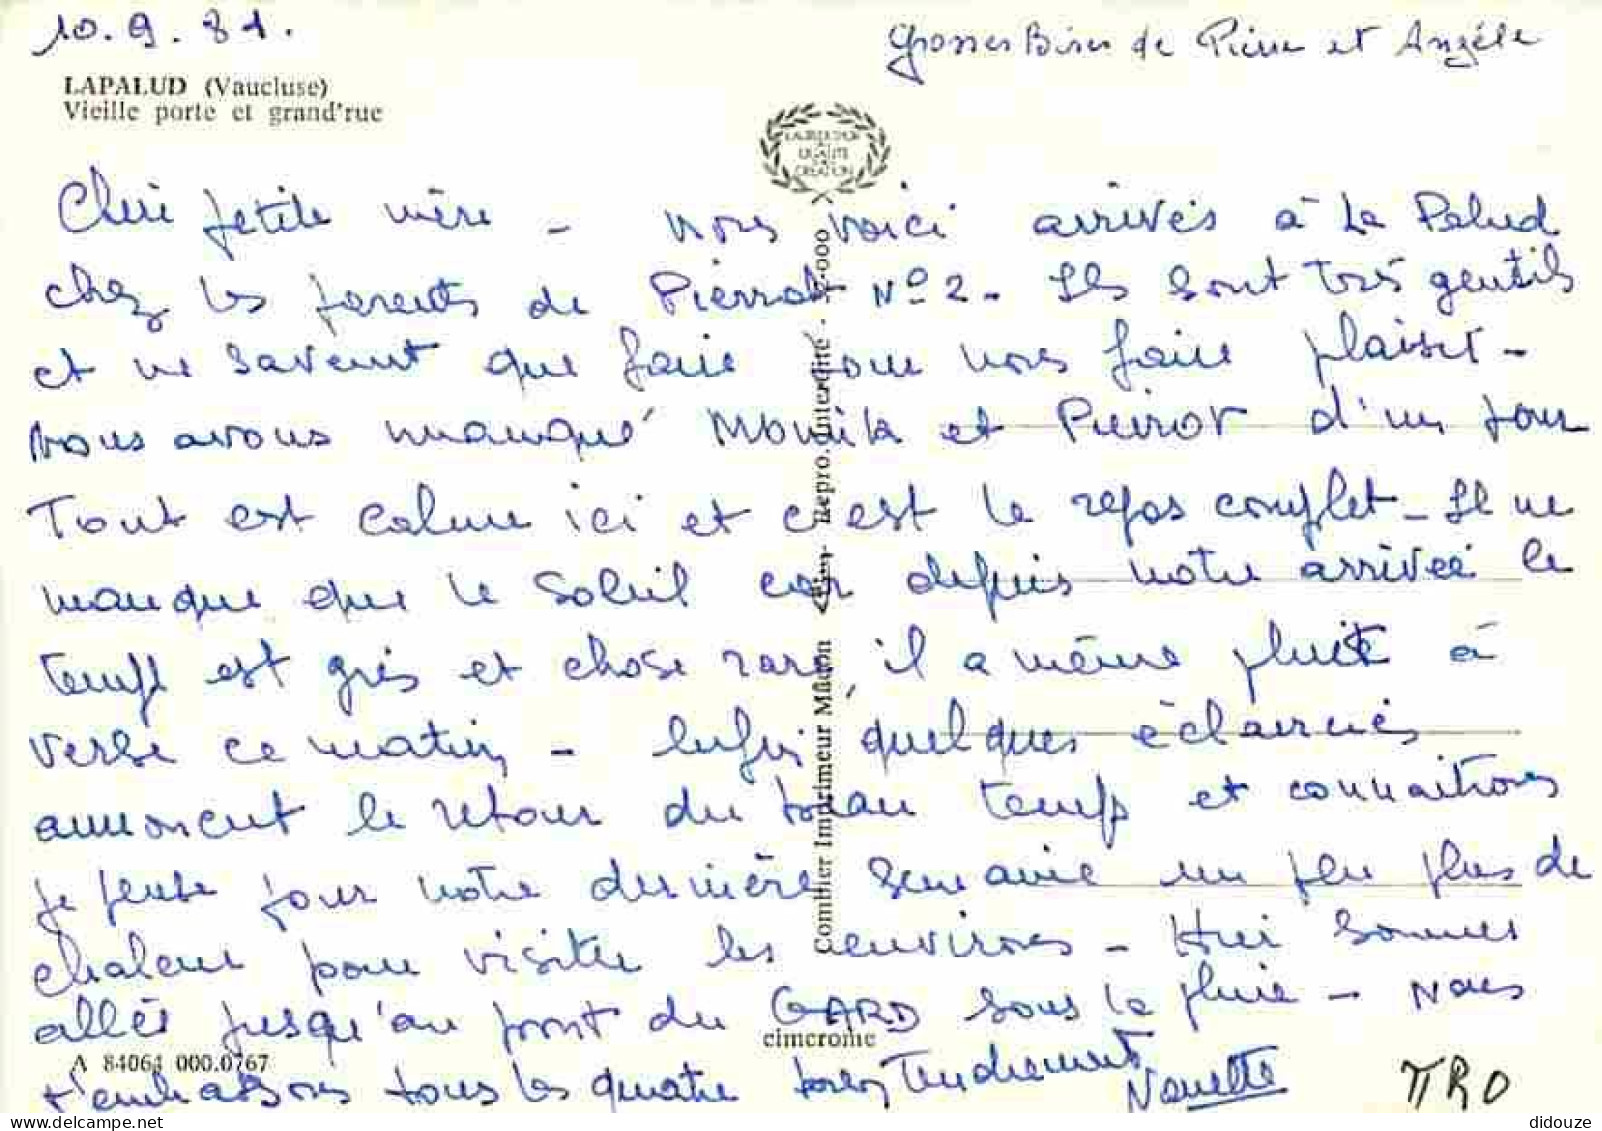 10.9.81.
Grosses Bises de Pierre et Angèle
LAPALUD (Vaucluse)
Vieille porte et grand'rue
CREATION
Cheri petite mère - nous voici arrivés à La Palud
chez les parents de Pierrot No 2 - Ils sont très gentils
et ne savent que faire pour nous faire plaisir -
Nous avons manqué Monik et Pierrot d'un jour
Tout est calme ici et c'est le repos complet - Il ne
manque que le soleil car depuis notre arrivée le
temps est gris et chose rare il a même pluit à
verse ce matin - Enfin quelques éclaircies
annoncent le retour du beau temps et connaitrons
je pense pour notre dernière semaine un peu plus de
chaleur pour visiter les environs - Hier sommes
allés jusqu'au pont du GARD sous la pluie - Nous
t'embrassons tous les quatre bien Tendrement
Nanette
TRO
Combier Imprimeur Mâcon Repro. Interdite.
cimcrome
A 84064 000.0767
didouze